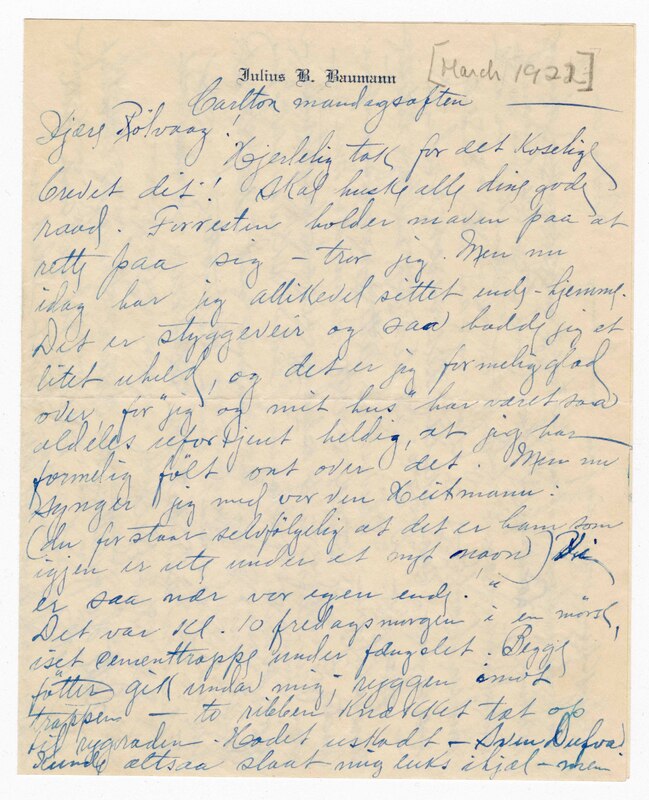 Julius B. Baumann
[March 1922]
Carlton mandagsaften
Kjære Rölvaag!
Hjertelig tak for det koselige
brevet dit! Skal huske alle dine gode
raad. Forresten holder maven paa at
rette paa sig – tror jeg. Men nu
idag har jeg allikevel sittet ende-hjemme.
Det er styggeveir og saa hadde jeg et
litet uheld, og det er jeg formelig glad
over, for "jeg og mit hus" har været saa
aldeles ufortjent heldig, at jeg har
formelig fölt ont over det. Men nu
synger jeg med vor ven Heitmann:
(du forstaar selvfölgelig at det er ham som
igjen er ute under et nyt navn) "Vi
er saa nær vor egen ende."
Det var kl. 10 fredagsmorgen i en mörk,
iset cementtrappe under fængslet. Begge
fötter gik under mig, ryggen imot
trappen – to ribben knækket tæt op
til rygraden. Hodet uskadt – Sven Dufva
kunde altsaa slaat mig luks ihjæl – men